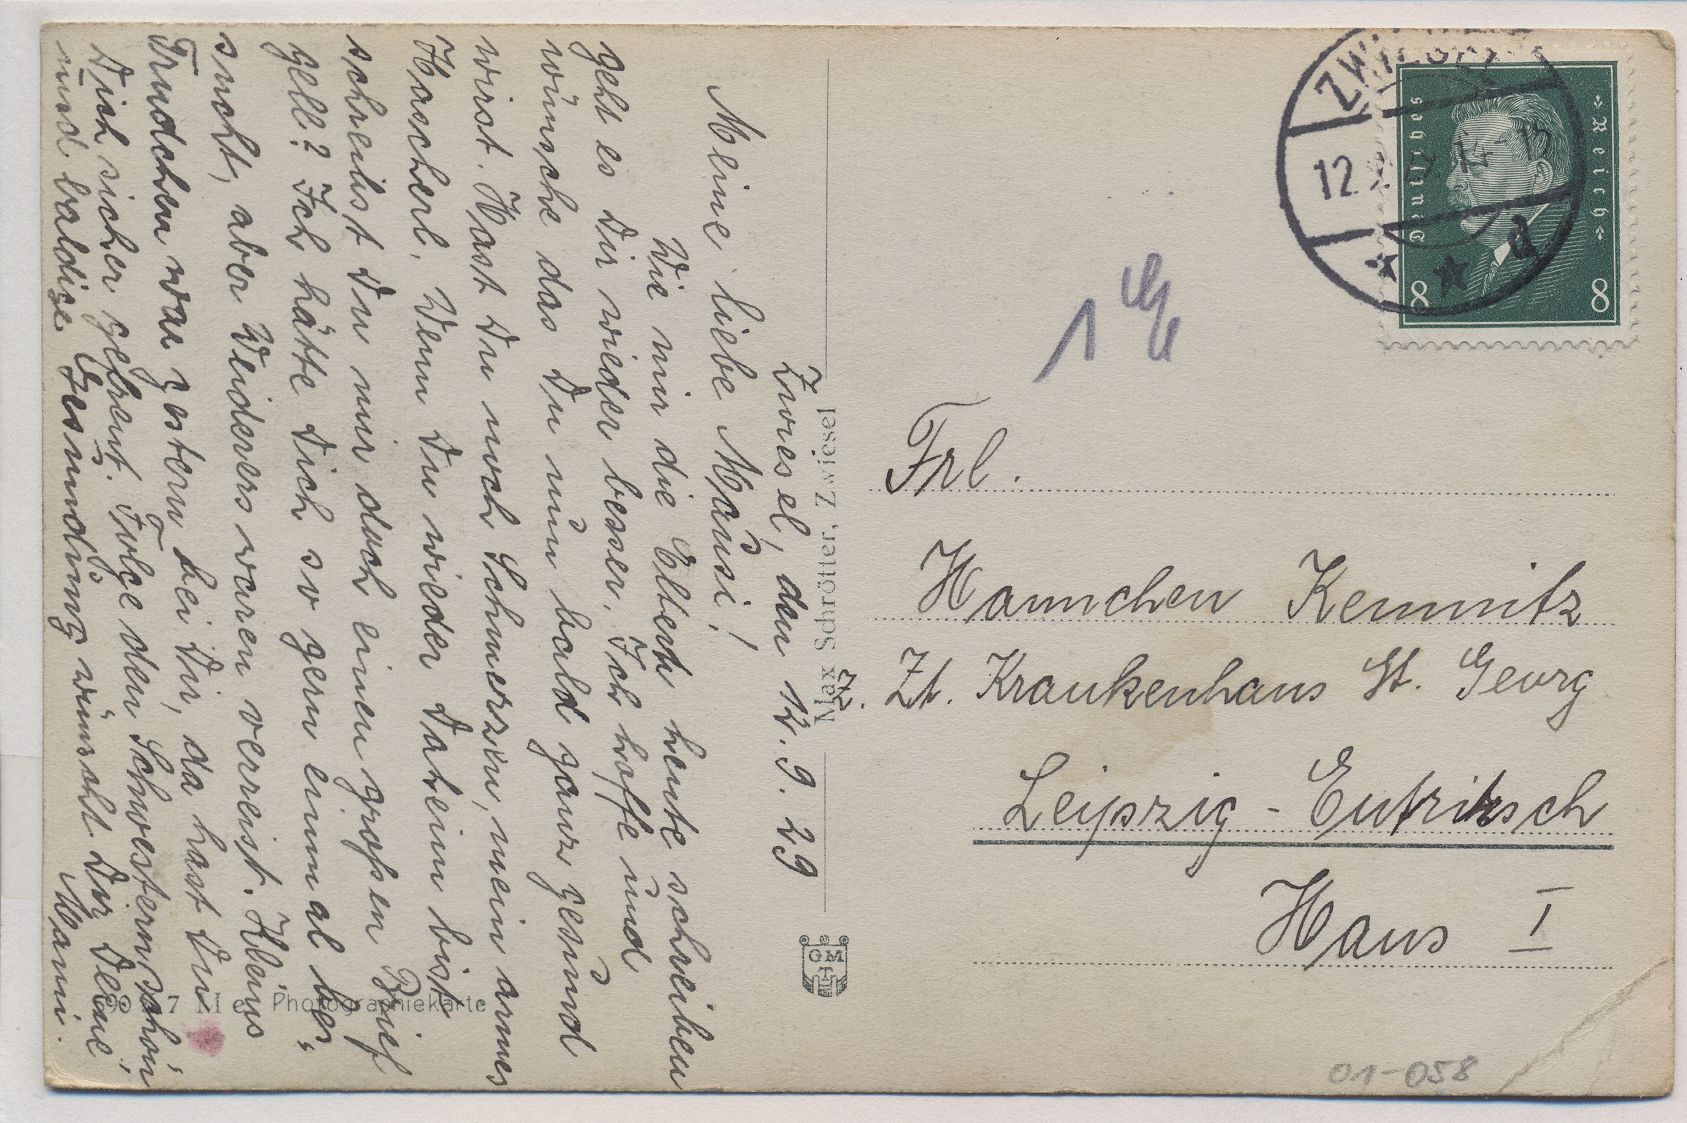 Zwiesel, den 12. 9. 29
Meine liebe Mausi!
Wie mir die Eltern heute schreiben
geht es Dir wieder besser. Ich hoffe und
wünsche das Du nun bald ganz gesund
wirst. Hast Du noch Schmerzen, mein armes
Hascherl. Wenn Du wieder Daheim bist
schreibst Du mir doch einen großen Brief
gell? Ich hätte Dich so gern einmal be-
sucht, aber Weiderers waren verreist.
Trudchen war gestern bei Dir, da hast Du
Dich sicher gefreut. Folge den Schwestern schön
und baldige Gesundung wünscht Dir Deine
Mami.
Max Schrötter, Zwiesel
GMT
Photographiekarte
ZWIESEL
12. 9. 29. 14-15
d
Deutsches Reich
8 8
Frl.
Hannchen Kemnitz
z. Zt. Krankenhaus St. Georg
Leipzig - Eutritzsch
Haus I
01-058